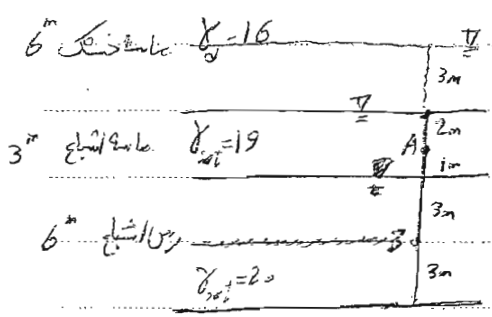 6 m ماسه خشک γd = 16
3m
2m
3 m ماسه اشباع γsat = 19 A
1m
6 m رس اشباع B 3m
γsat = 20 3m